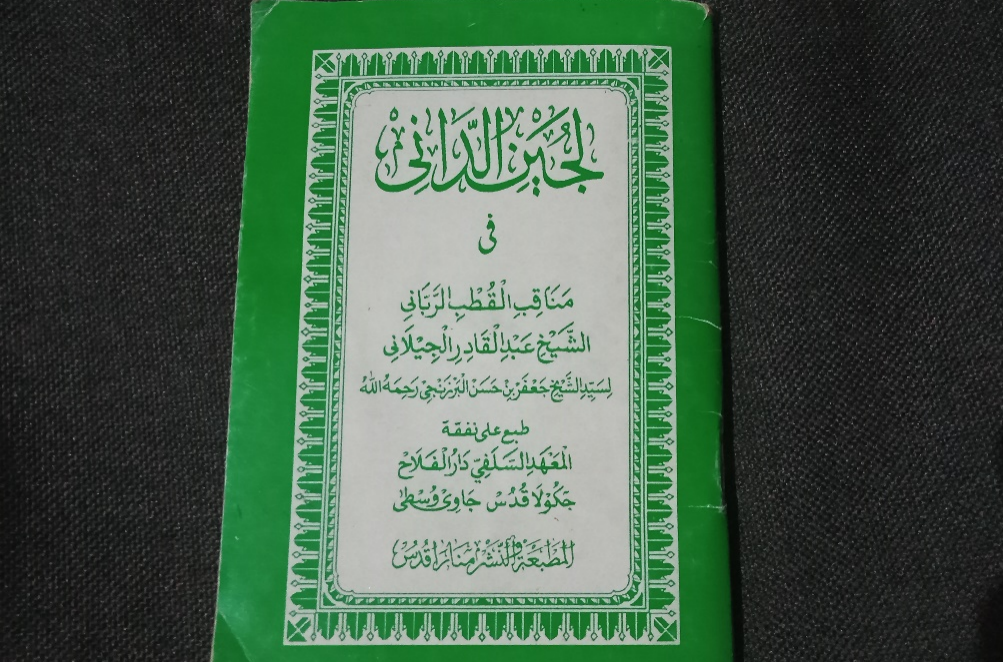 لُجَيْنِ الدَّانِي
فى
مَنَاقِبِ الْقُطْبِ الرَّبَّانِي
الشَّيْخِ عَبْدِ الْقَادِرِ الْجِيْلَانِي
لِسَيِّدِ الشَّيْخِ جَعْفَرْ بِنْ حَسَنْ الْبَرْزَنْجِي رَحِمَهُ اللّٰهُ
طبع على نفقة
الْمَعْهَدِ السَّلَفِيّ دَارُ الْفَلَاحْ
جَكُولَا قُدُسْ جَاوِى وُسْطَى
الْمَطْبَعَةْ وَالنَّشْرْ مَنَارَا قُدُسْ